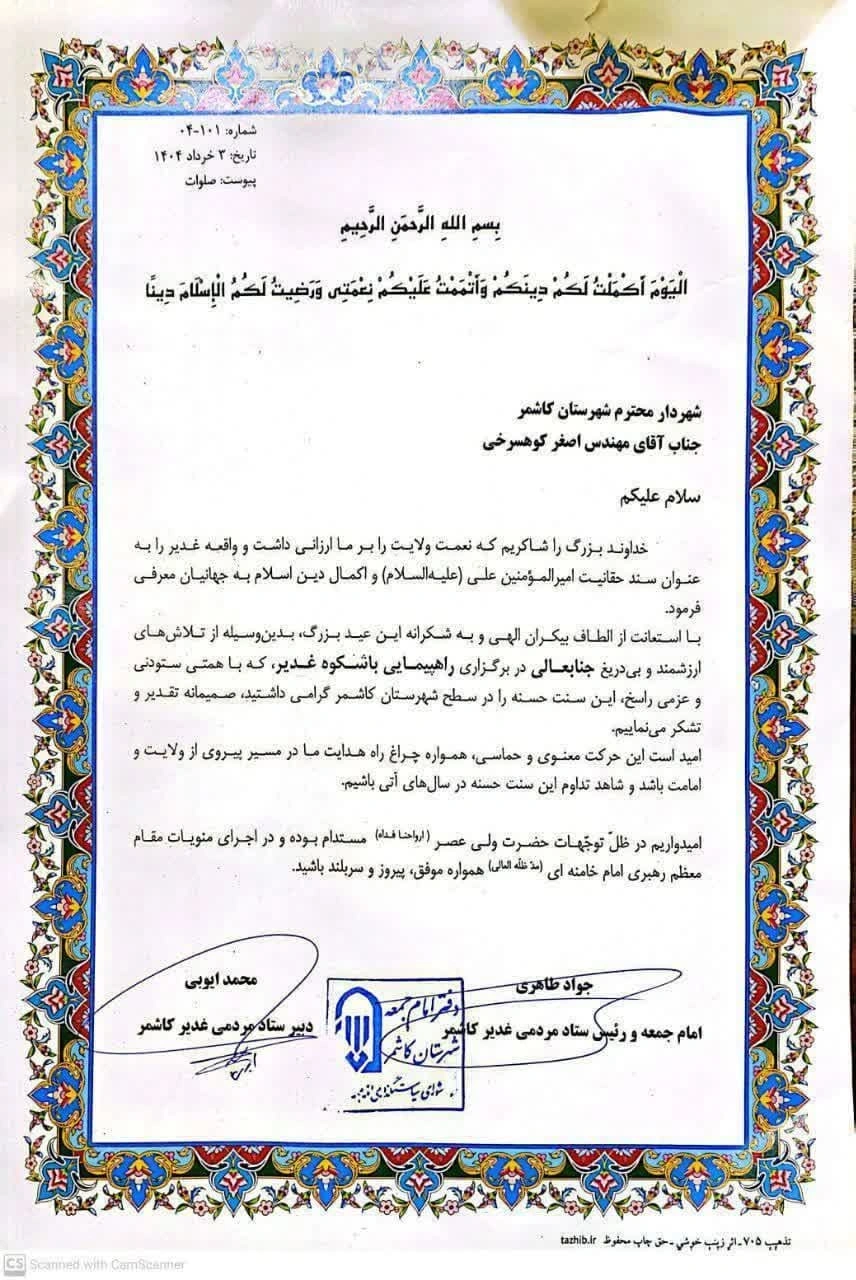 شماره: ۱۰۱-۰۴
تاریخ: ۳ خرداد ۱۴۰۴
پیوست: صلوات
بِسمِ اللهِ الرَّحمَنِ الرَّحِيمِ
الْيَوْمَ أَكْمَلْتُ لَكُمْ دِينَكُمْ وَأَتْمَمْتُ عَلَيْكُمْ نِعْمَتِي وَرَضِيتُ لَكُمُ الْإِسْلَامَ دِينًا
شهردار محترم شهرستان کاشمر
جناب آقای مهندس اصغر کوهسرخی
سلام علیکم
خداوند بزرگ را شاکریم که نعمت ولایت را بر ما ارزانی داشت و واقعه غدیر را به
عنوان سند حقانیت امیرالمؤمنین علی (علیه‌السلام) و اکمال دین اسلام به جهانیان معرفی
فرمود.
با استعانت از الطاف بیکران الهی و به شکرانه این عید بزرگ، بدین‌وسیله از تلاش‌های
ارزشمند و بی‌دریغ جنابعالی در برگزاری راهپیمایی باشکوه غدیر، که با همتی ستودنی
و عزمی راسخ، این سنت حسنه را در سطح شهرستان کاشمر گرامی داشتید، صمیمانه تقدیر و
تشکر می‌نماییم.
امید است این حرکت معنوی و حماسی، همواره چراغ راه هدایت ما در مسیر پیروی از ولایت و
امامت باشد و شاهد تداوم این سنت حسنه در سال‌های آتی باشیم.
امیدواریم در ظلّ توجّهات حضرت ولی عصر (ارواحنا فداه) مستدام بوده و در اجرای منویات مقام
معظم رهبری امام خامنه ای (مدّ ظلّه العالی) همواره موفق، پیروز و سربلند باشید.
جواد طاهری
امام جمعه و رئیس ستاد مردمی غدیر کاشمر
محمد ایوبی
دبیر ستاد مردمی غدیر کاشمر
دفتر امام جمعه
شهرستان کاشمر
تذهیب ۷۰۵ - اثر زینب خوشی - حق چاپ محفوظ tazhib.ir
CS Scanned with CamScanner